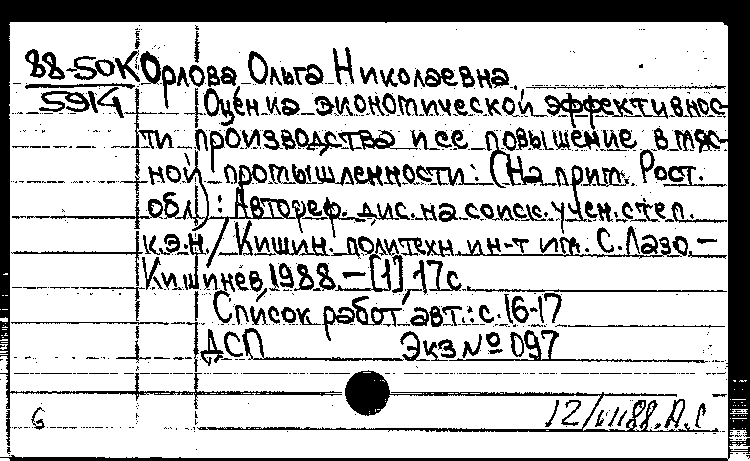 88-50К Орлова Ольга Николаевна.
5914 Оценка экономической эффективнос-
ти производства и ее повышение в мяс-
ной промышленности: (На прим. Рост.
обл.): Автореф. дис. на соиск. учен. степ.
к.э.н. / Кишин. политехн. ин-т им. С. Лазо. –
Кишинев, 1988. – [1] 17 с.
Список работ авт.: с. 16-17
ДСП Экз № 097
6